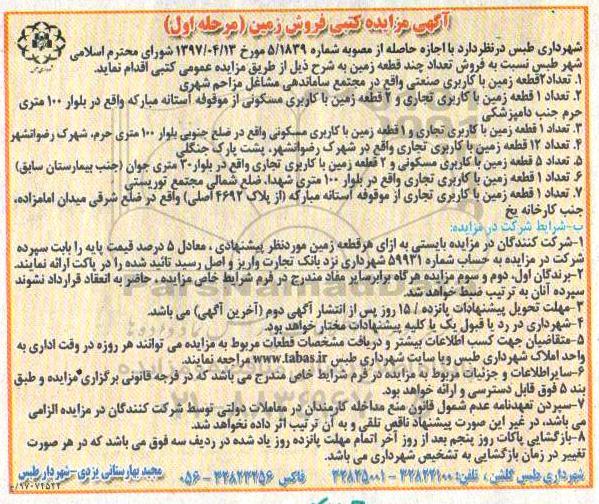 آگهی مزایده کتبی فروش زمین (مرحله اول)
شهرداری طبس درنظردارد با اجازه حاصله از مصوبه شماره ۵/۱۸۳۹ مورخ ۱۳۹۷/۰۴/۱۳ شورای محترم اسلامی
شهر طبس نسبت به فروش تعداد چند قطعه زمین به شرح ذیل از طریق مزایده عمومی کتبی اقدام نماید.
۱. تعداد۲قطعه زمین با کاربری صنعتی واقع در مجتمع ساماندهی مشاغل مزاحم شهری
۲. تعداد ۱ قطعه زمین با کاربری تجاری و ۲ قطعه زمین با کاربری مسکونی از موقوفه آستانه مبارکه واقع در بلوار ۱۰۰ متری
حرم جنب دامپزشکی
۳. تعداد ۱ قطعه زمین با کاربری تجاری و ۱ قطعه زمین با کاربری مسکونی واقع در ضلع جنوبی بلوار ۱۰۰ متری حرم، شهرک رضوانشهر
۴. تعداد ۱۲ قطعه زمین با کاربری تجاری واقع در شهرک رضوانشهر، پشت پارک جنگلی
۵. تعداد ۵ قطعه زمین با کاربری مسکونی و ۲ قطعه زمین با کاربری تجاری واقع در بلوار۳۰ متری جوان (جنب بیمارستان سابق)
۶. تعداد ۱ قطعه زمین با کاربری تجاری واقع در بلوار ۱۰۰ متری شهدا، ضلع شمالی مجتمع توریستی
۷. تعداد ۱ قطعه زمین با کاربری تجاری از موقوفه آستانه مبارکه (از پلاک ۴۶۹۲ اصلی) واقع در ضلع شرقی میدان امامزاده،
جنب کارخانه یخ
ب-شرایط شرکت در مزایده:
۱-شرکت کنندگان در مزایده بایستی به ازای هرقطعه زمین موردنظر پیشنهادی ، معادل ۵ درصد قیمت پایه را بابت سپرده
شرکت در مزایده به حساب شماره ۵۹۹۳۱ شهرداری نزد بانک تجارت واریز و اصل رسید تائید شده را در پاکت ارائه نمایند.
۲-برندگان اول، دوم و سوم مزایده هرگاه برابرسایر مفاد مندرج در فرم شرایط خاص مزایده ، حاضر به انعقاد قرارداد نشوند
سپرده آنان به ترتیب ضبط خواهدشد.
۳-مهلت تحویل پیشنهادات پانزده / ۱۵ روز پس از انتشار آگهی دوم (آخرین آگهی) می باشد.
۴-شهرداری در رد یا قبول یک یا کلیه پیشنهادات مختار خواهد بود.
۵-متقاضیان جهت کسب اطلاعات بیشتر و دریافت مشخصات قطعات مربوط به مزایده می توانند هر روزه در وقت اداری به
واحد املاک شهرداری طبس ویا سایت شهرداری طبس www.tabas.ir مراجعه نمایند.
۶-سایراطلاعات و جزئیات مربوط به مزایده در فرم شرایط خاص مندرج می باشد که در فرجه قانونی برگزاری مزایده و طبق
بند ۵ فوق قابل دسترسی و ارائه خواهد بود.
۷-سپردن تعهدنامه عدم شمول قانون منع مداخله کارمندان در معاملات دولتی توسط شرکت کنندگان در مزایده الزامی
می باشد، در غیر این صورت پیشنهاد ناقص تلقی و به آن ترتیب اثر داده نخواهد شد.
۸-بازگشایی پاکات روز پنجم بعد از روز آخر اتمام مهلت پانزده روز یاد شده در ردیف سه فوق می باشد که در هر صورت
تغییر در زمان بازگشایی به تشخیص شهرداری می باشد.
شهرداری طبس گلشن ، تلفن: ۳۲۸۲۲۱۰۰ - ۳۲۸۲۵۰۰۱ فاکس ۳۲۸۲۳۲۵۶ - ۰۵۶ مجید بهارستانی یزدی-شهردارطبس